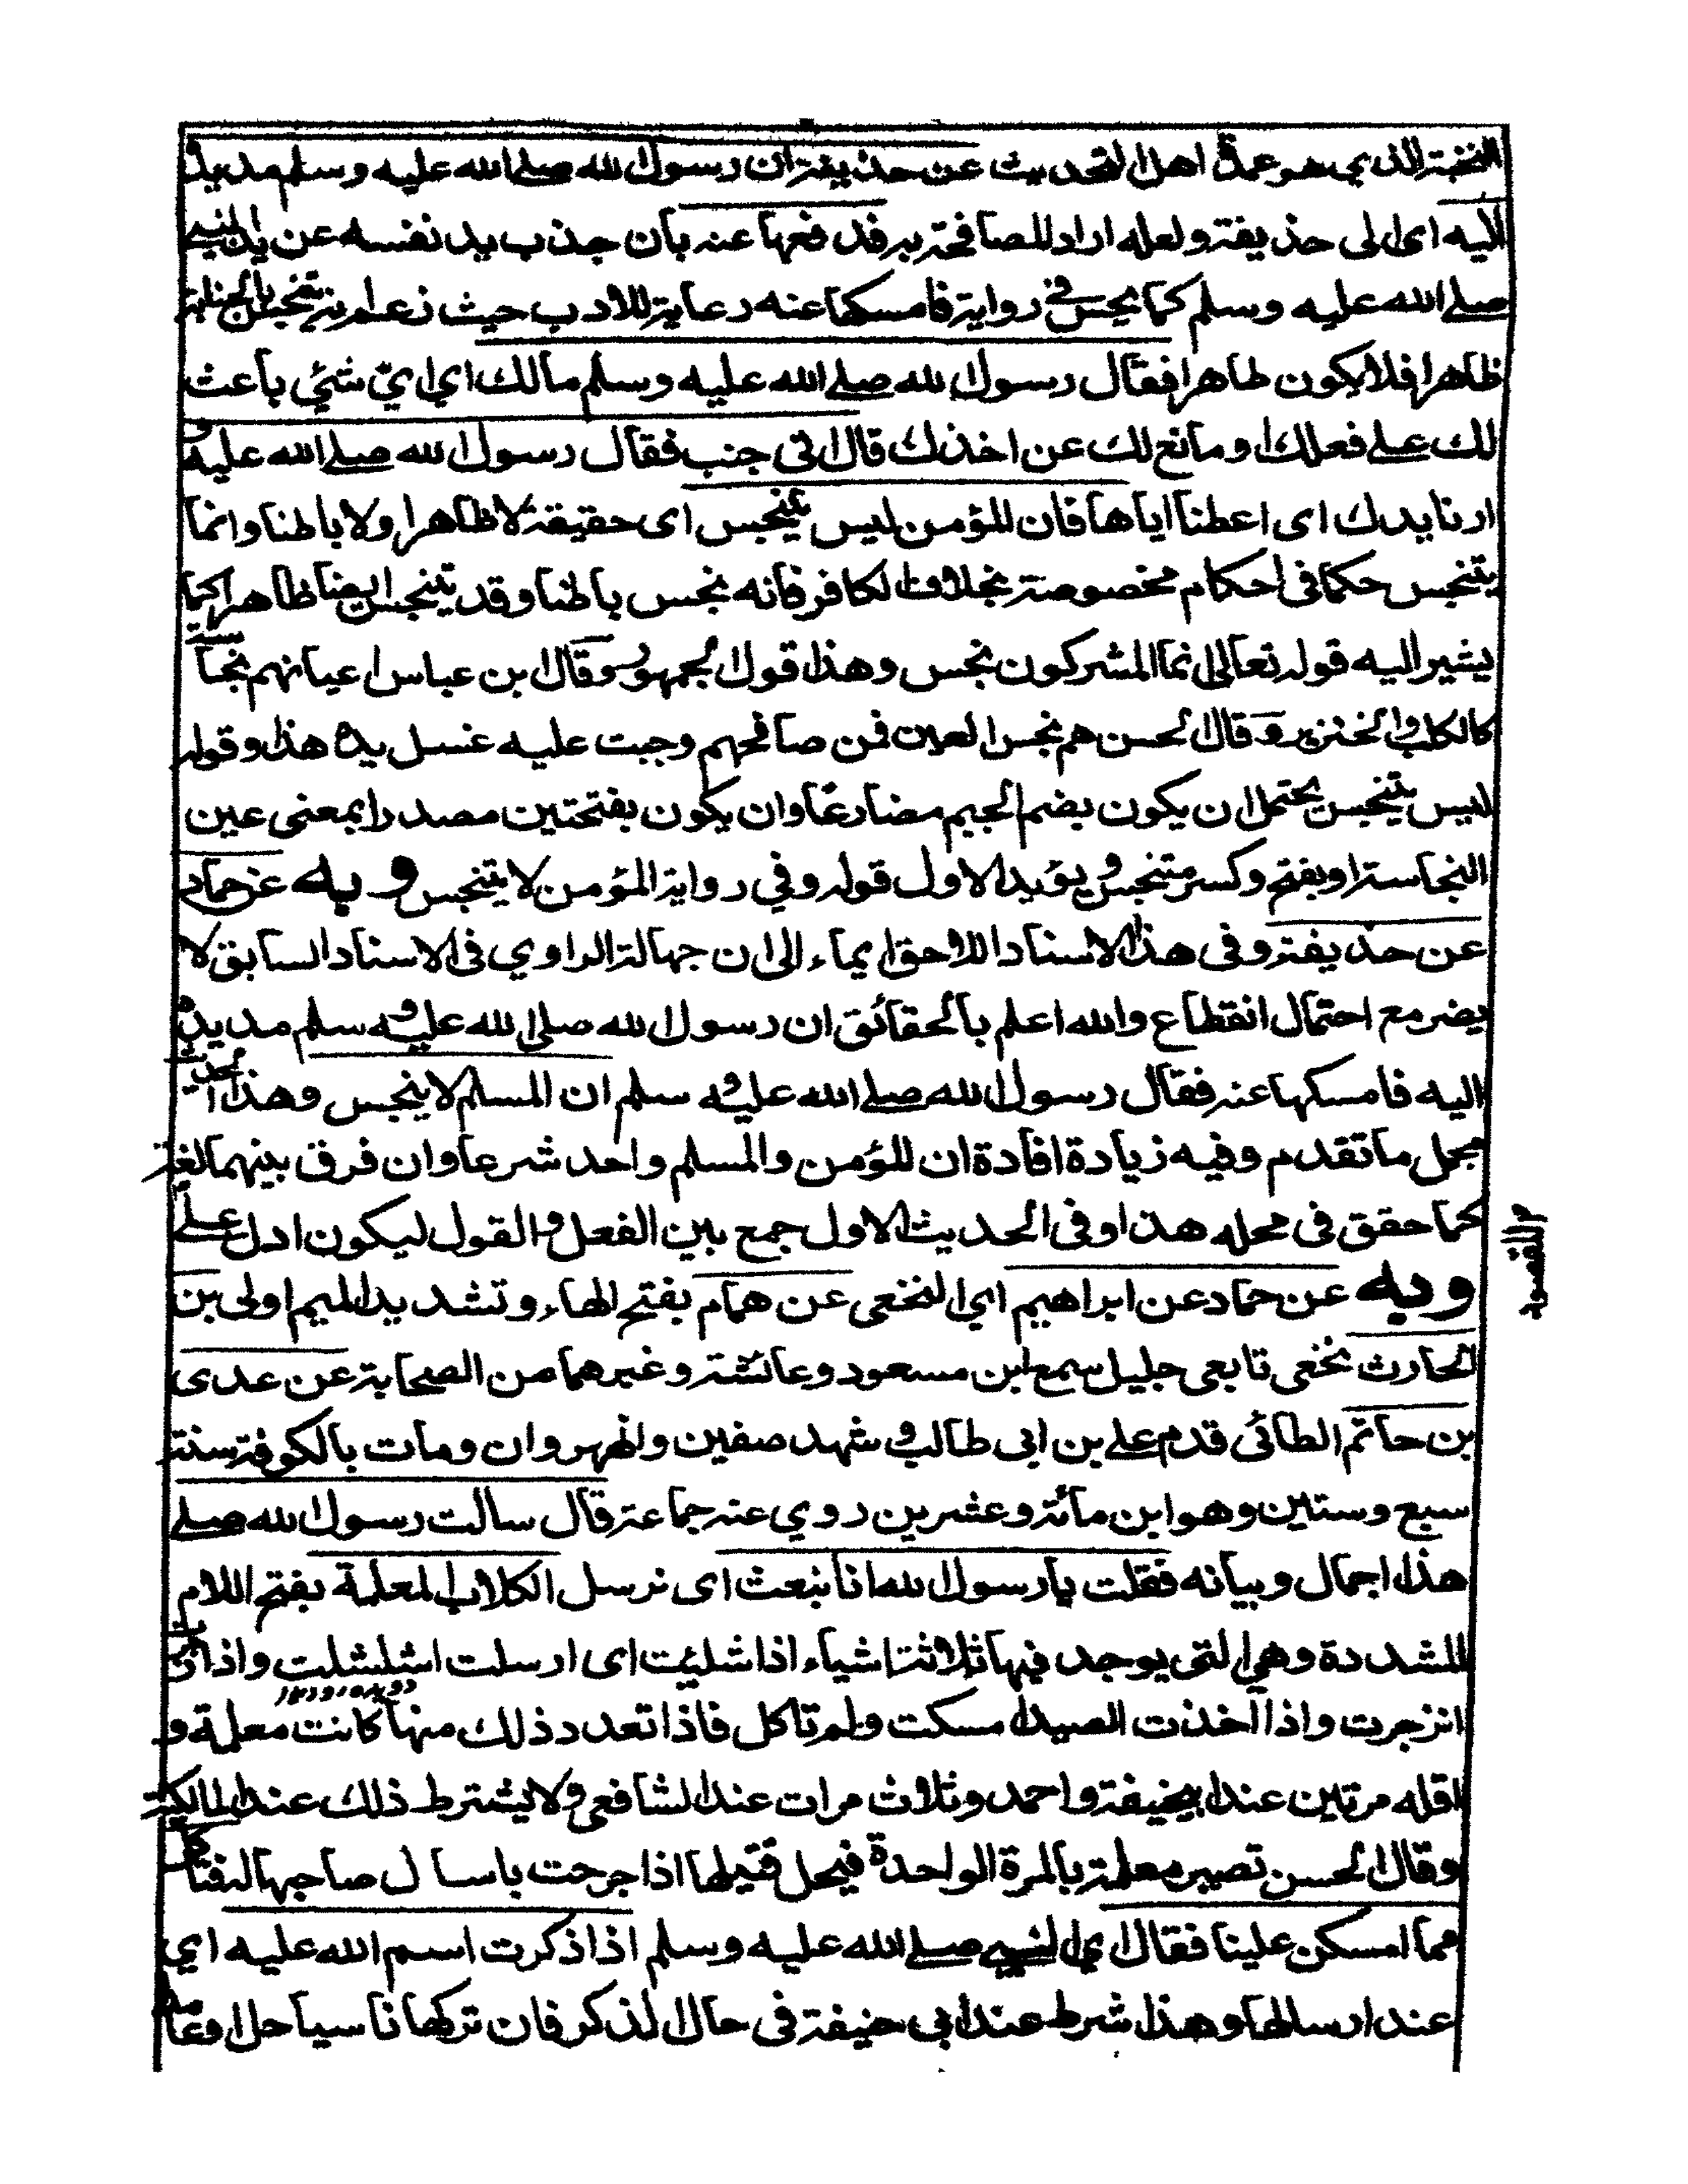 النخبة الذي هو عمدة اهل التحديث عن حذيفة ان رسول الله صلى الله عليه وسلم مد يده
اليه اى الى حذيفة ولعله اراد للمصافحة به فدفعها عنه بان جذب يد نفسه عن يد النبي
صلى الله عليه وسلم كما يجئ في رواية فامسكها عنه رعاية للادب حيث زعم انه يتنجس بالجنابة
ظاهرا فلا يكون طاهرا فقال رسول الله صلى الله عليه وسلم مالك اي اي شئي باعث
لك على فعلك او مانع لك عن اخذك قال اني جنب فقال رسول الله صلى الله عليه و
ارنا يدك اى اعطنا اياها فان المؤمن ليس ينجس اى حقيقة لا ظاهرا ولا باطنا وانما
يتنجس حكما فى احكام مخصوصة بخلاف الكافر فانه نجس باطنا وقد يتنجس ايضا ظاهرا كما
يشير اليه قوله تعالى انما المشركون نجس وهذا قول الجمهور وقال ابن عباس اعيانهم نجسة
كالكلب والخنزير و قال الحسن هم نجس العين فمن صافحهم وجبت عليه غسل يده هذا وقوله
ليس يتنجس يحتمل ان يكون بضم الجيم مضارعا وان يكون بفتحتين مصدرا بمعنى عين
النجاسة او بفتح وكسر متنجس ويؤيد الاول قوله وفي رواية المؤمن لا يتنجس و به عن حماد
عن حذيفة وفى هذا الاسناد اللاحق ايماء الى ان جهالة الراوي فى الاسناد السابق لا
يضر مع احتمال انقطاع والله اعلم بالحقائق ان رسول الله صلى الله عليه و سلم مد يده
اليه فامسكها عنه فقال رسول الله صلى الله عليه و سلم ان المسلم لا ينجس وهذا الحديث
مجمل ما تقدم وفيه زيادة افادة ان المؤمن والمسلم واحد شرعا وان فرق بينهما لغة
كما حقق فى محله هذا وفى الحديث الاول جمع بين الفعل والقول ليكون ادل على
والمقصود
وبه عن حماد عن ابراهيم اي النخعى عن همام بفتح الهاء وتشديد الميم اولى بن
الحارث نخعى تابعى جليل سمع ابن مسعود وعائشة وغيرهما من الصحابة عن عدى
بن حاتم الطائى قدم على بن ابى طالب و شهد صفين والنهروان ومات بالكوفة سنة
سبع وستين وهو ابن مائة وعشرين روي عنه جماعة قال سالت رسول الله صلى
هذا اجمال وبيانه فقلت يا رسول الله انا نبعث اى نرسل الكلاب المعلمة بفتح اللام
المشددة وهي التى يوجد فيها ثلاثة اشياء اذا شليت اى ارسلت استشلت واذا
انزجرت واذا اخذت الصيد امسكت ولم تاكل فاذا تعدد ذلك منها كانت معلمة و
اقله مرتين عند ابيحنيفة واحمد وثلاث مرات عند الشافعى ولا يشترط ذلك عند المالكية
وقال الحسن تصير معلمة بالمرة الواحدة فيحل قتيلها اذا جرحت بارسال صاحبها
مما امسكن علينا فقال اي النبي صلى الله عليه وسلم اذا ذكرت اسم الله عليه اي
عند ارسالها وهذا شرط عند ابى حنيفة فى حال الذكر فان تركها ناسيا حل او عامدا